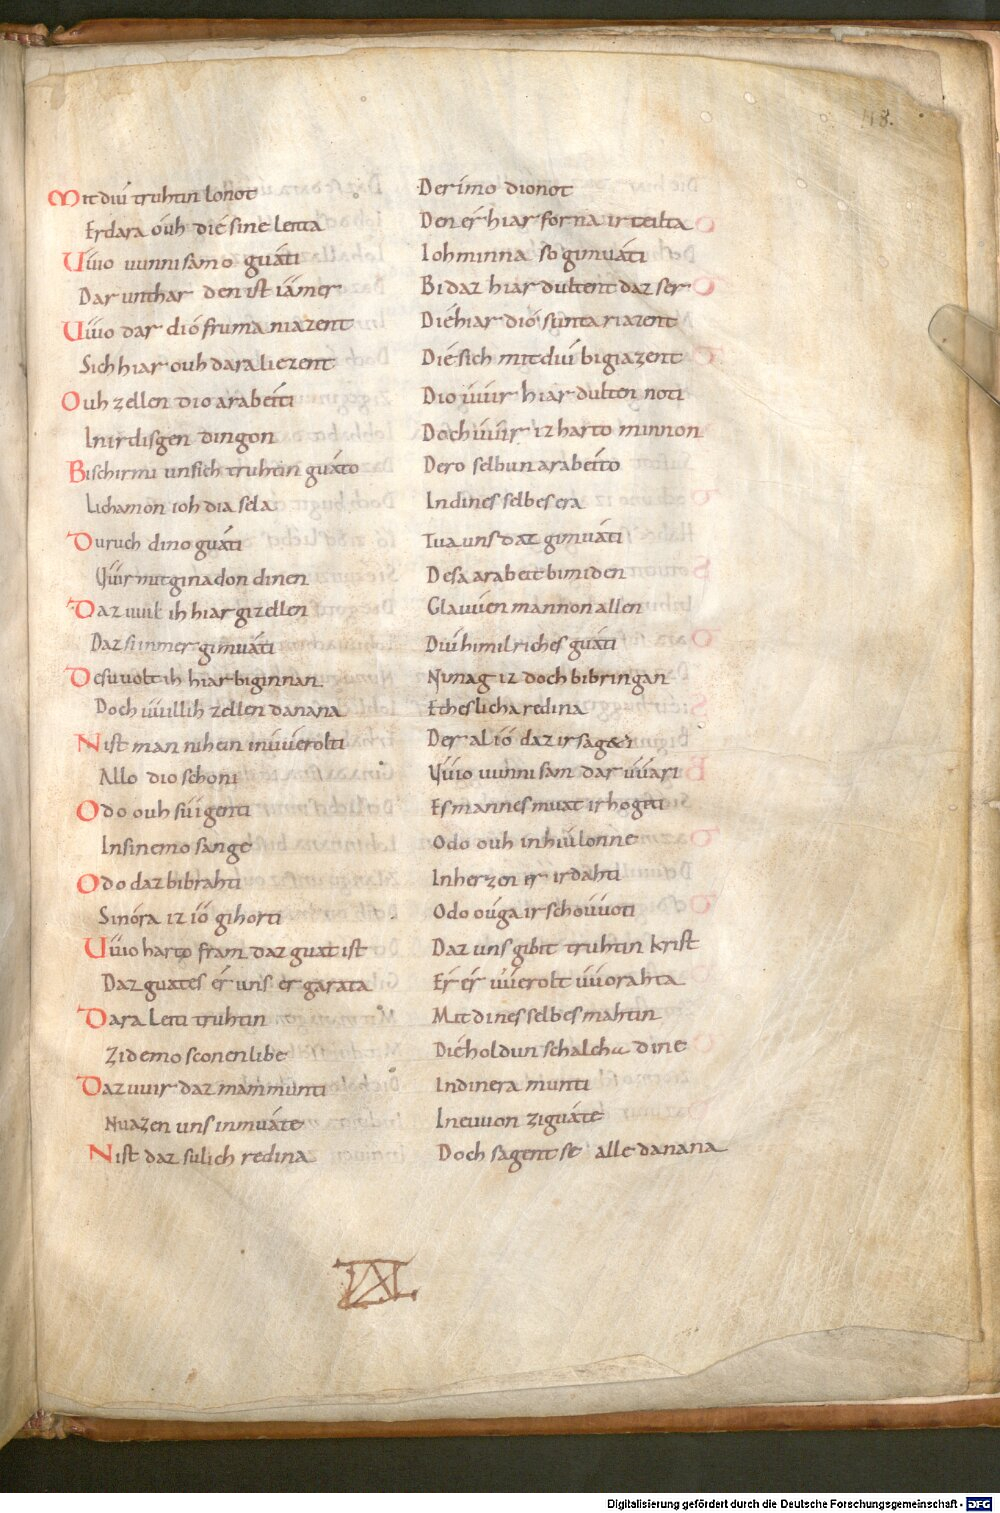 118.
Mit diu truhtin lonot Der imo dionot
Er dara ouh die sine leitta Den er hiar forna ir teilta
Uuio uunnisamo guati Ioh minna so gimuati
Dar unthar den ist iamer Bi daz hiar dultent daz ser
Uuio dar dio fruma niazent Die hiar dio sunta riazent
Sich hiar ouh dara liezent Die sich mit diu bigiazent
Ouh zellen dio arabeiti Dio uuir hiar dulten noti
In irdisgen dingon Doch uuir iz harto minnon
Biscirmi unsich truhtin guato Dero selbun arabeito
Lichamon ioh dia sela In dines selbes era
Duruch dino guati Tua uns daz gimuati
Uuir mit ginadon dinen Desa arabeit bimiden
Daz uuil ih hiar gizellen Glauuen mannon allen
Daz si immer gimuati Diu himilriches guati
Des uuolt ih hiar biginnan. Nu mag iz doch bibringan
Doch uuillih zellen danana Etheslicha redina
Nist man nihein in uuerolti Der al io daz irsaget
Allo dio sconi Uuio uunnisam dar uuari
Odo ouh suigenti Es mannes muat irhogiti
In sinemo sange Odo ouh in hiulonne
Odo daz bibrahti In herzen er irdahti
Sin ora iz io gihorti Odo ouga irscouuoti
Uuio harto fram daz guat ist Daz uns gibit truhtin krist
Daz guates er uns er garata Er er uuerolt uuorahta
Dara leiti truhtin Mit dines selbes mahtin
Zi demo sconen libe Die holdun schalcha dine
Daz uuir daz mammunti In dinera munti
Niazen uns in muate In euuon zi guate
Nist daz sulich redina Doch sagent se alle danana